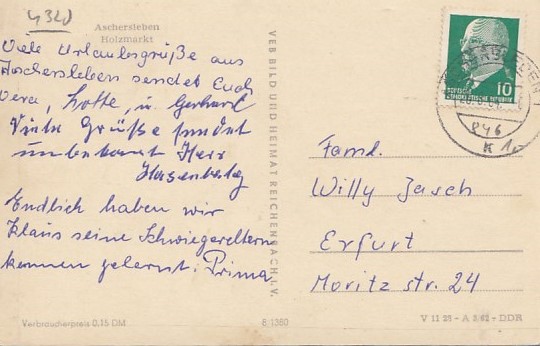 4320
Aschersleben
Holzmarkt
Viele Urlaubsgrüße aus
Aschersleben sendet Euch
Vera, Lotte, u. Gerhard
Viele Grüße sendet
unbekannt Herr
Hasenbalg
Endlich haben wir
Klaus seine Schwiegereltern
kennen gelernt: Prima
Verbraucherpreis 0,15 DM
VEB BILD UND HEIMAT REICHENBACH I. V.
B 1380
10
DEUTSCHE
DEMOKRATISCHE REPUBLIK
846
K 1
Faml.
Willy Jasch
Erfurt
Moritz str. 24
V 11 28 - A 3 62 - DDR